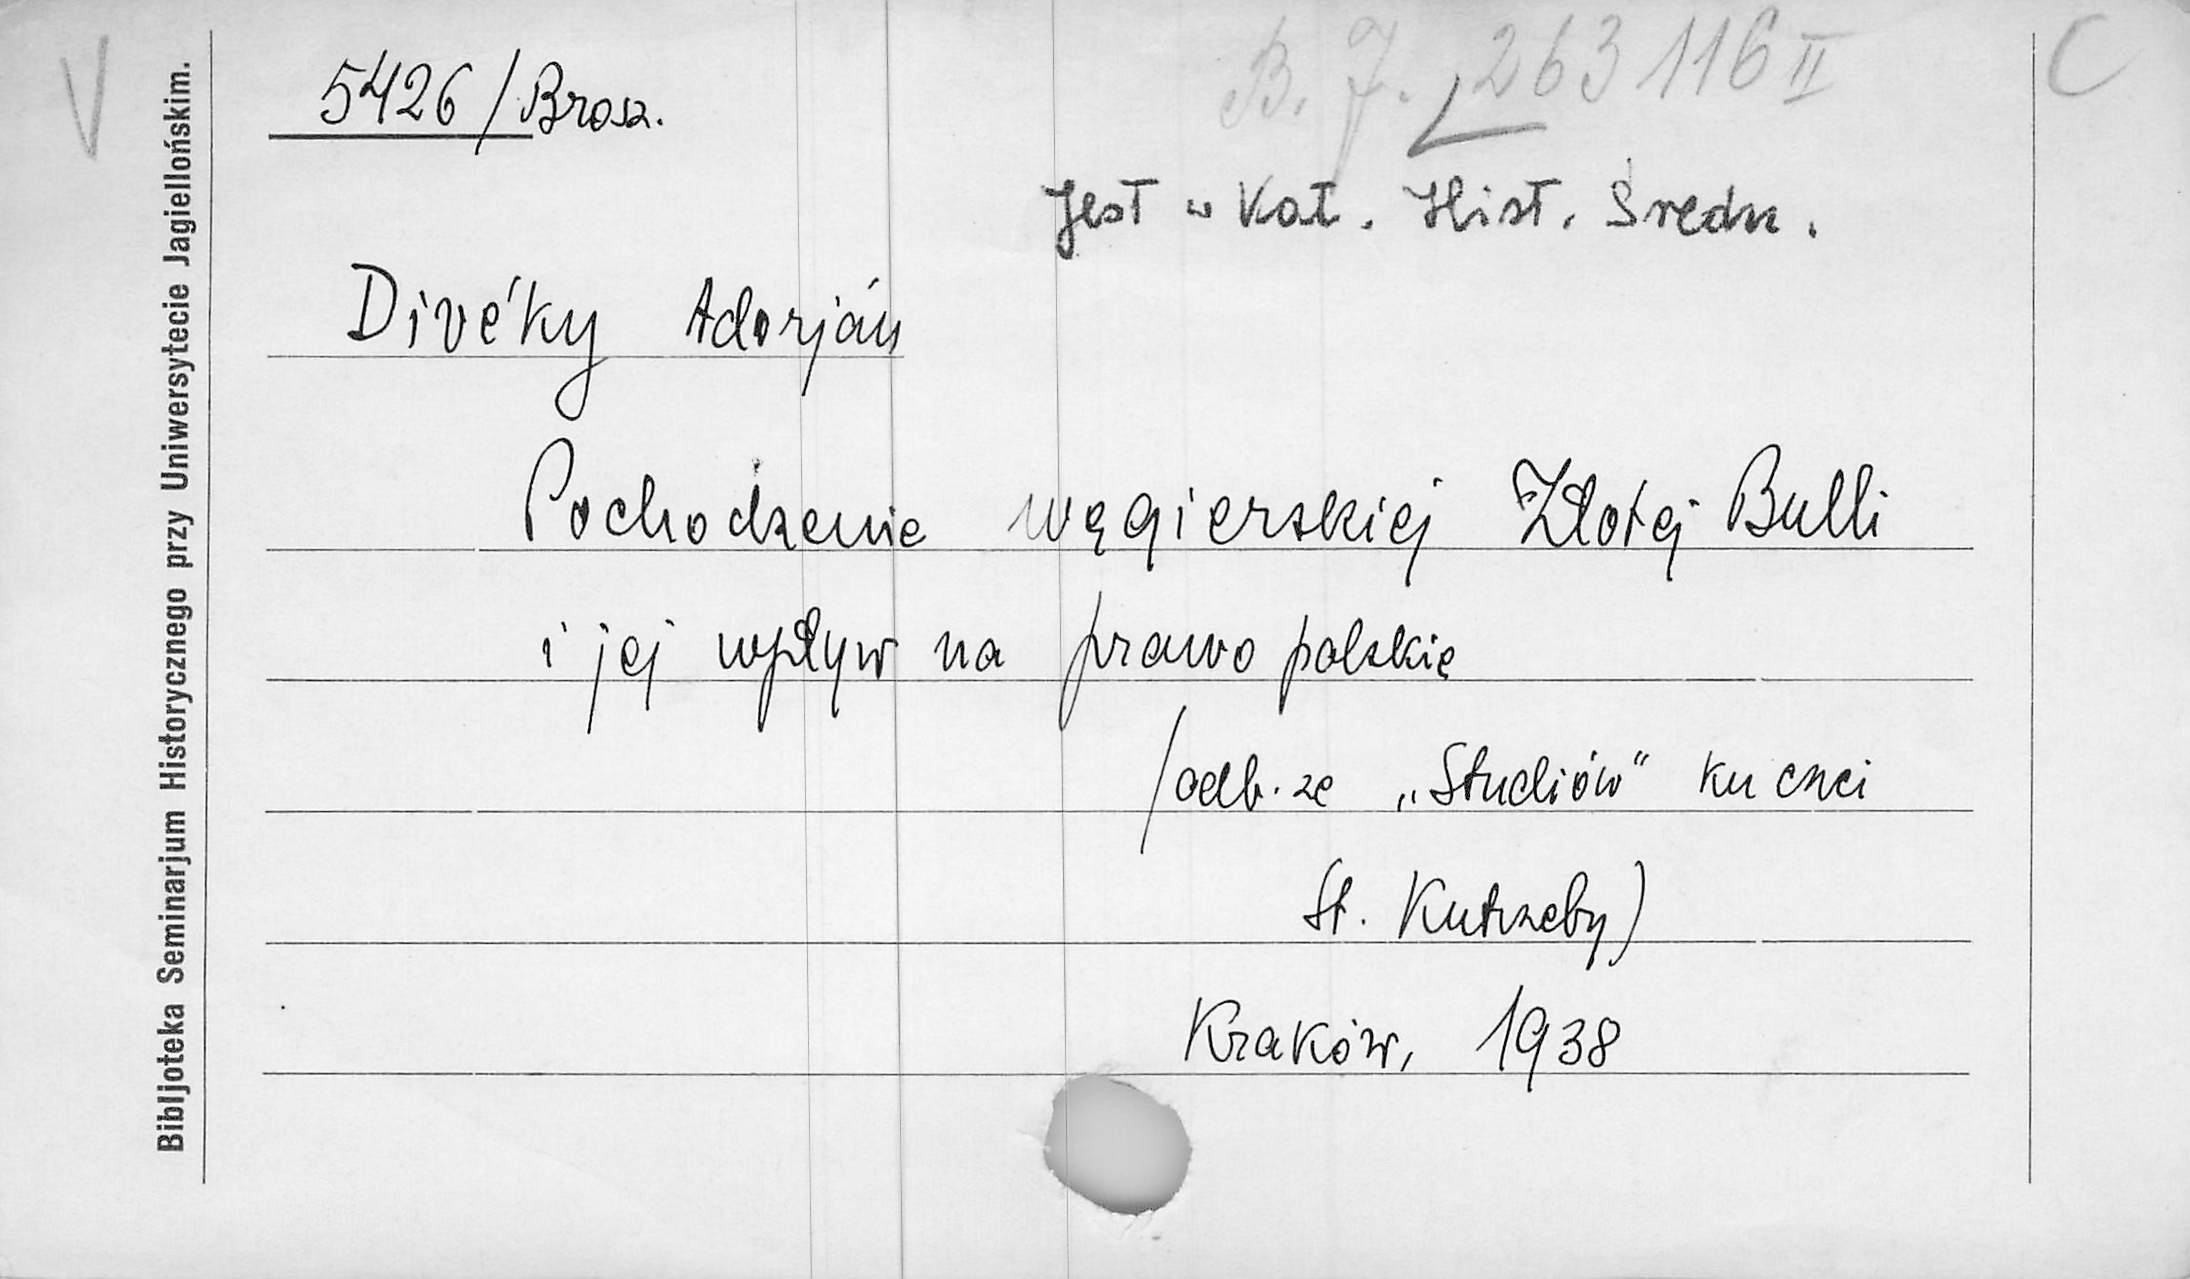 V
B. J. 263116 II
C
5426/Brosz.
Jest w Kat. Hist. Średn.
Divéky Adorján
Pochodzenie węgierskiej Złotej Bulli
i jej wpływ na prawo polskie
/odb. ze „Studiów" ku czci
St. Kutrzeby)
Kraków, 1938
Bibljoteka Seminarjum Historycznego przy Uniwersytecie Jagiellońskim.